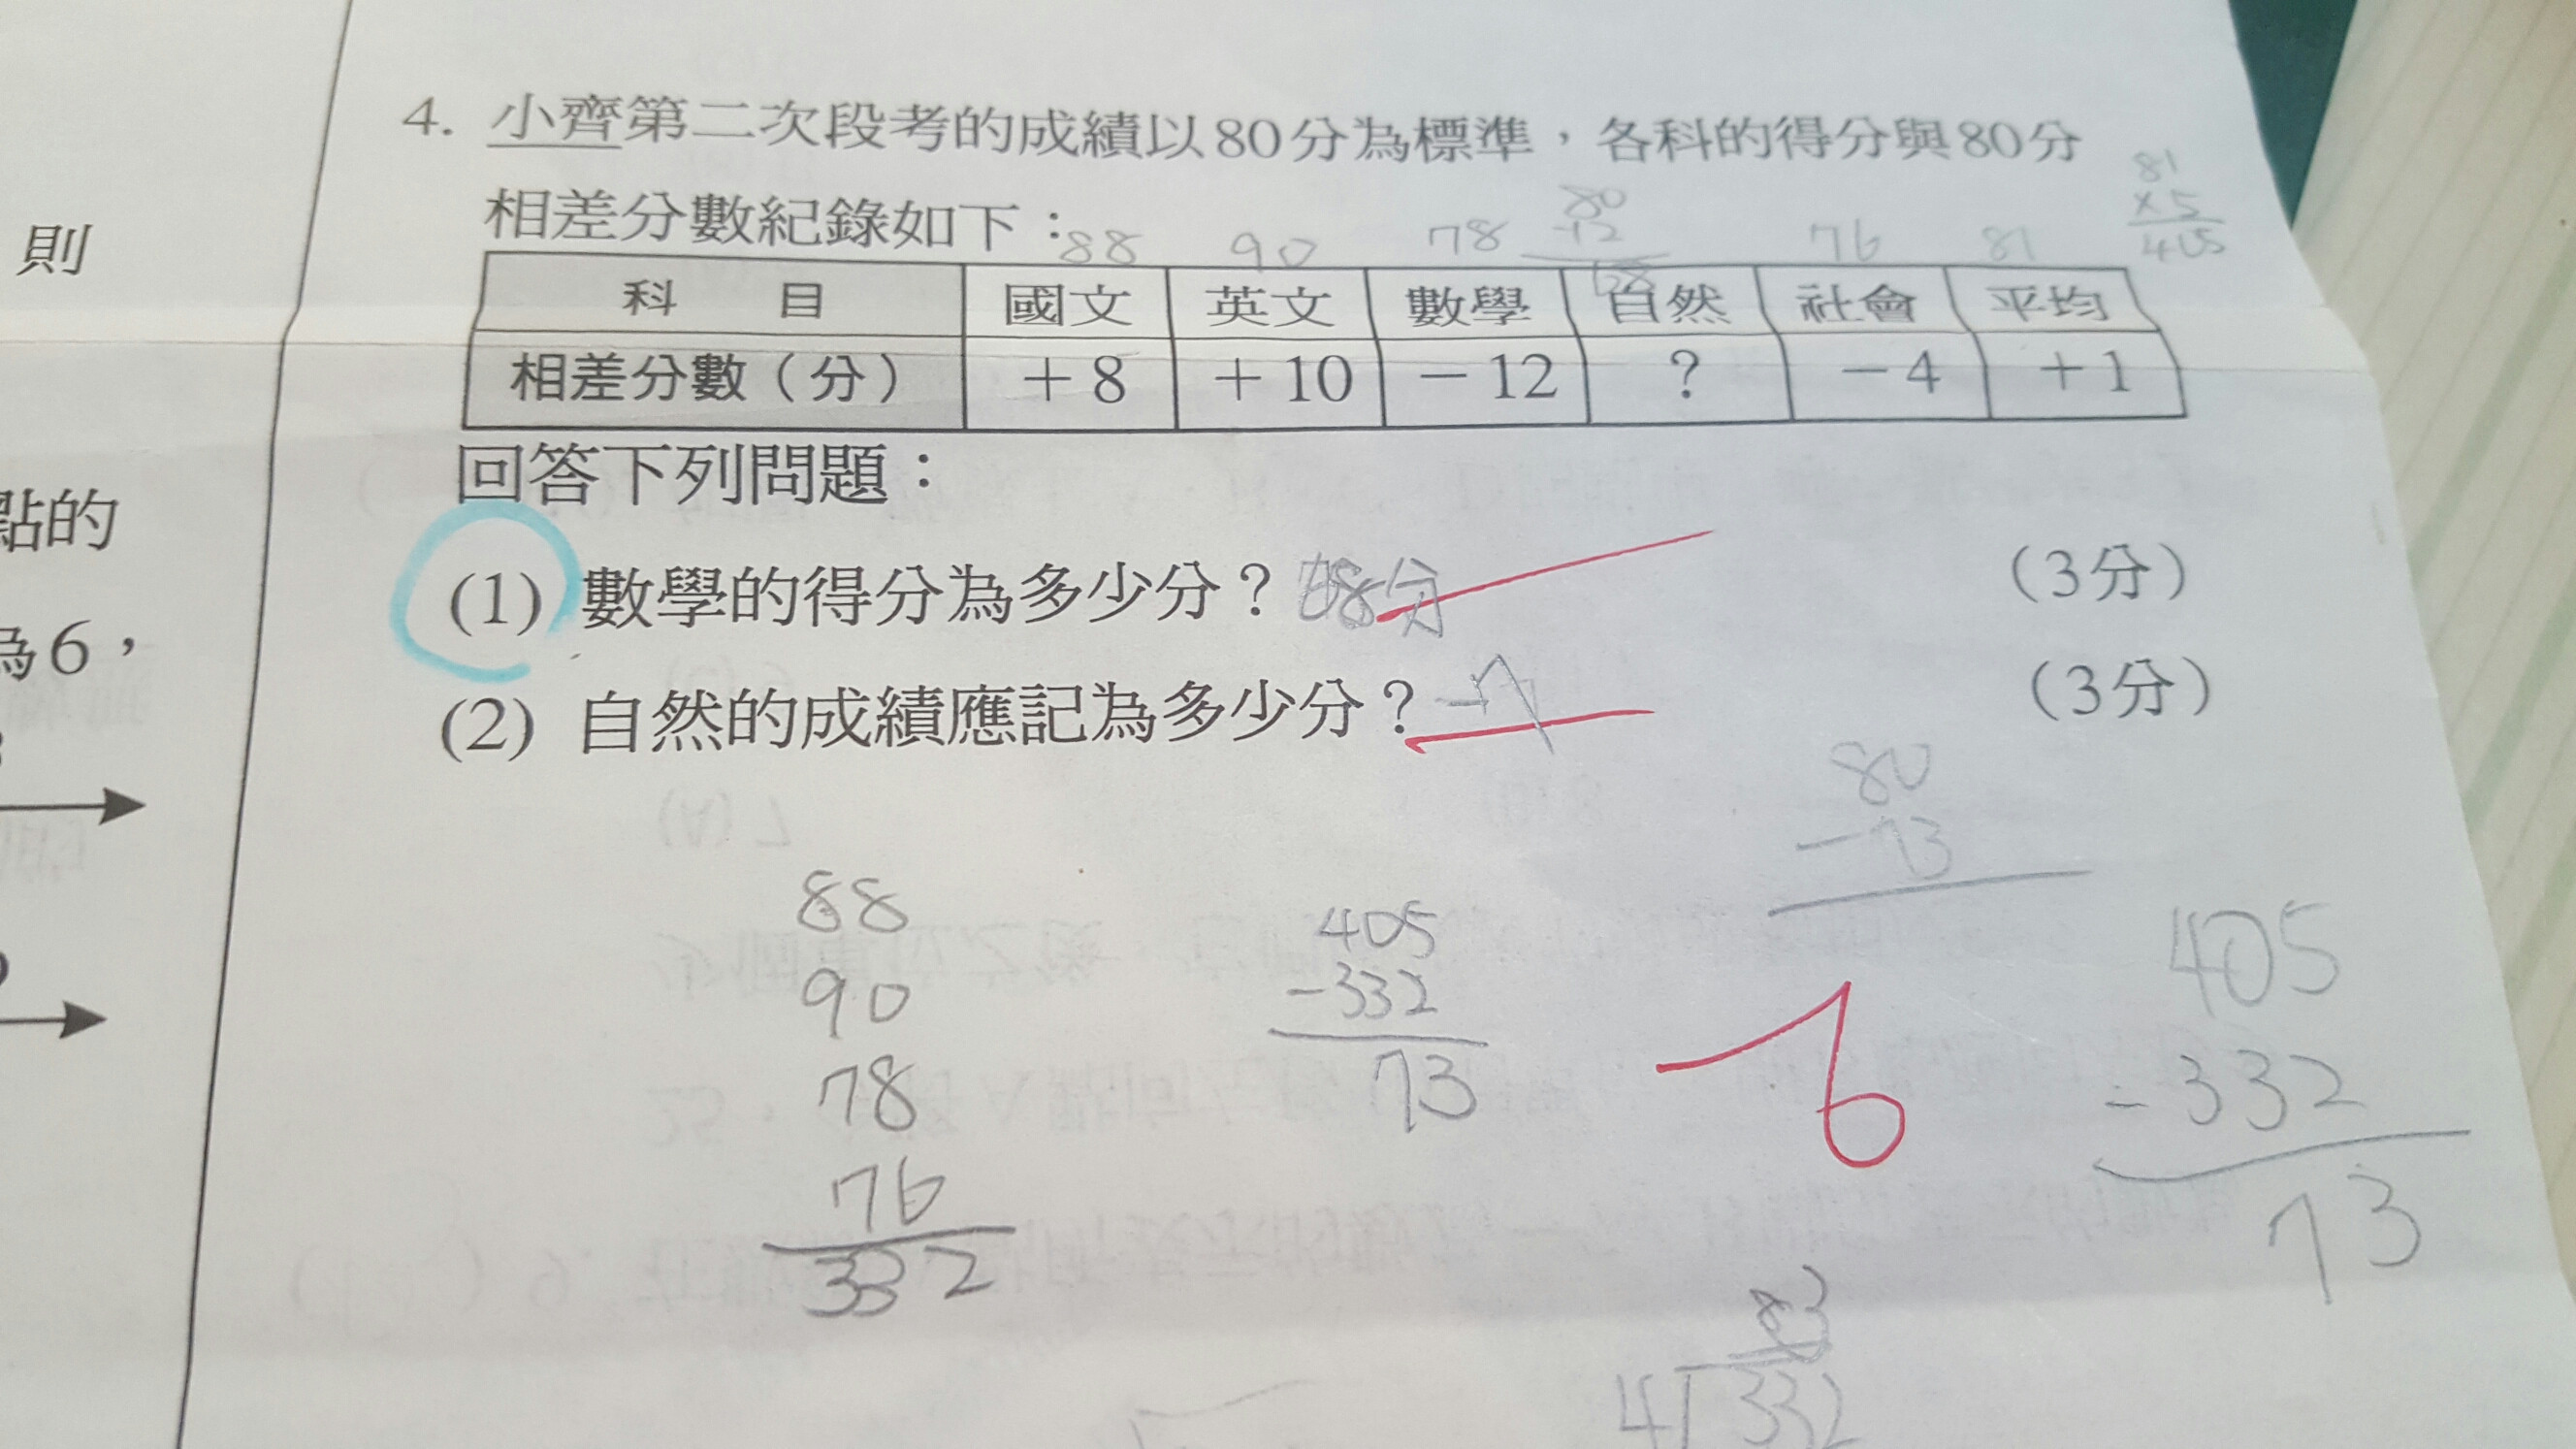 4. 小齊第二次段考的成績以80分為標準,各科的得分與80分
相差分數紀錄如下:
81
× 5
405
80
-12
68
88 90 78 76 81
科 目 國文 英文 數學 自然 社會 平均
相差分數(分) +8 +10 -12 ? -4 +1
回答下列問題:
(1) 數學的得分為多少分? 68分 (3分)
(2) 自然的成績應記為多少分? -7 (3分)
80
-73
88
90
78
76
332
405
-332
73
-6
405
-332
73
83
4 332
則
點的
為6,